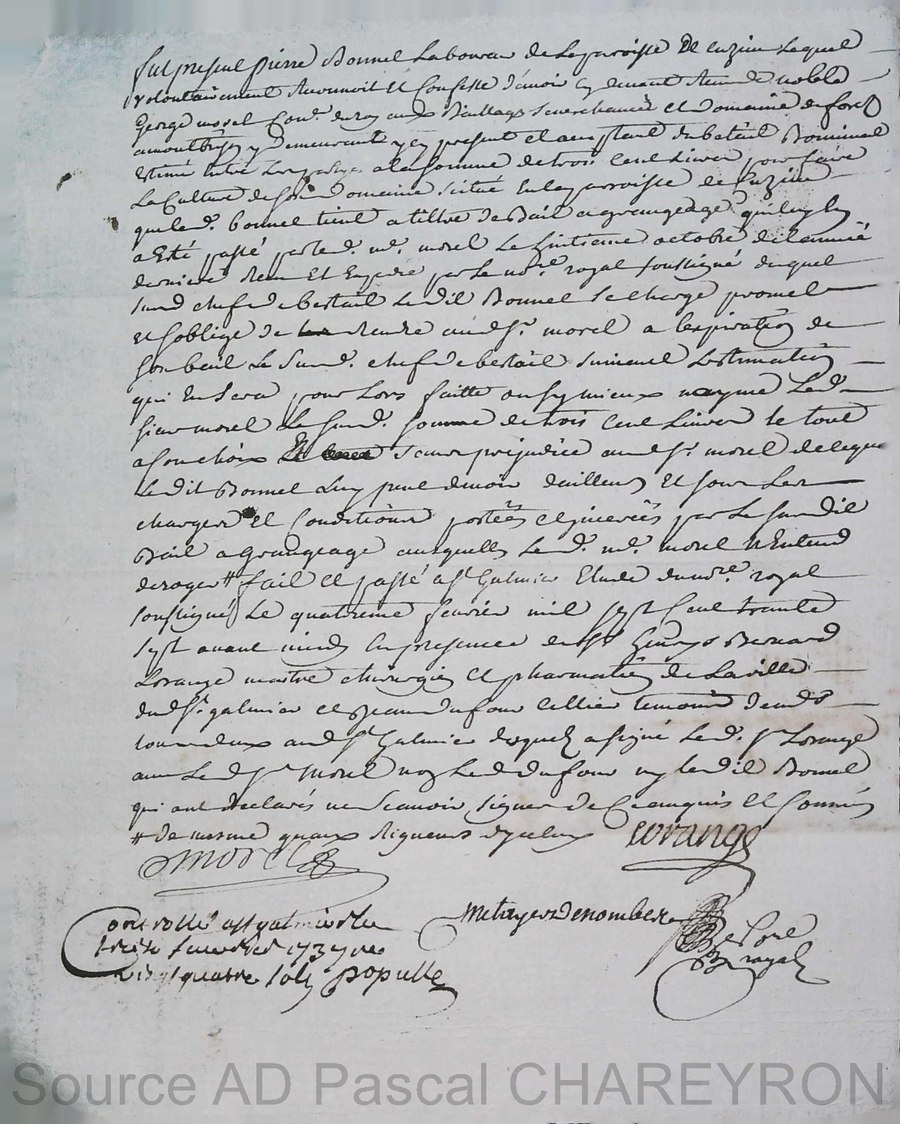 fut present pierre Bonnel Laboureur de La paroisse de cuzieu Lequel
volontairement reconnoit et Confesse d'avoir en commande de noble
george morel Conr. du roy aux Bailliage Senechaussée et Domaine de forest
a montbrison y demeurant icy present et acceptant du betail Bominal
Estimé entre Les parties a la somme de trois Cent Livres pour faire
La Culture de son Domaine scitué en la paroisse de Cuzieu
que led. bonnel tient a tiltre de Bail a grangeage qui luy en
a Esté passé par led. mr. morel Le huitieme octobre de l'année
derniere receu Et Expedié par Le nore. royal soussigné duquel
susd chef de bestail Ledit Bonnel se charge promet
et s'oblige de rendre audt sr. morel a l'expiration de
son bail Le susd. chef de bestail suivant L'estimation
qui En sera pour Lors faitte ou sy mieux n'ayme Led
sieur morel La susd. somme de trois Cent Livres le tout
a son choix sans prejudice audt sr. morel de ce que
Ledit Bonnel Luy peut devoir d'ailleurs Et sous Les
charges et Conditions portées et inserées par Le susdit
Bail a grangeage ausquelles Led. mr. morel n'Entend
deroger # fait et passé a st Galmier Etude du nore. royal
soussigné Le quatrieme fevrier mil sept Cent trante
sept avant midy En presence de sr Bernard
Lorange maitre chirurgien et pharmatien de La ville
dud st. galmier et Jean dufour cellier temoins
tous deux aud st Galmier desquels a signé Led. sr Lorange
avec Led sr Morel non Led dufour ny ledit Bonnel
qui ont declarés ne scavoir signer de Ce enquis et sommés
# de mesme qu'aux rigueurs d'yceluy Lorange
Morel
Controllé a st galmier le
treize fevrier 1737 reçu
vingt quatre sols populle
royal
Source AD Pascal CHAREYRON